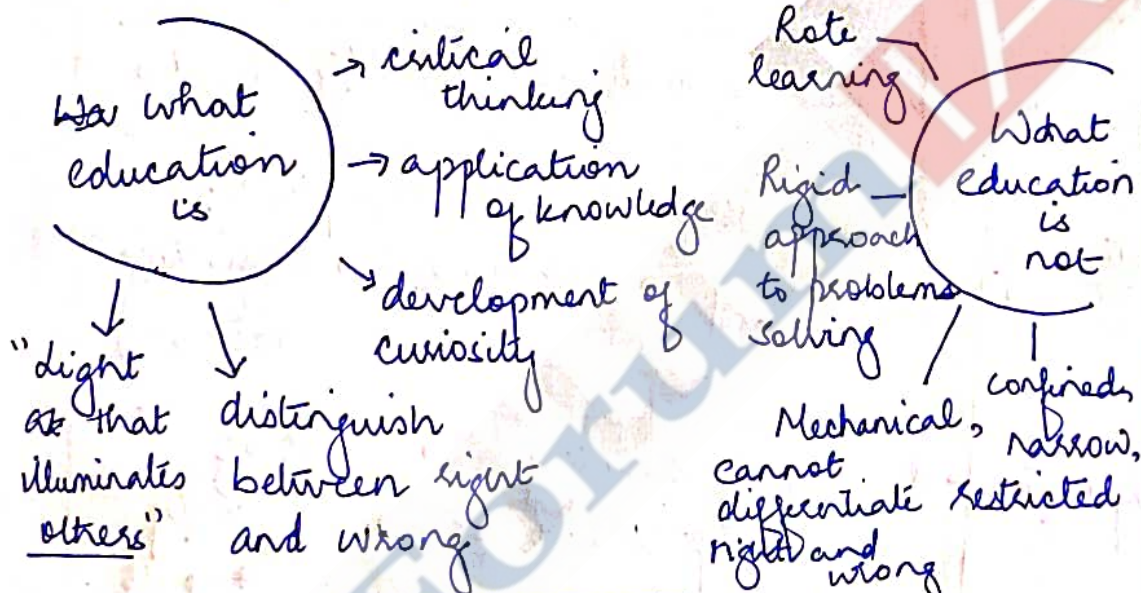 what
education
is
→ critical
thinking
→ application
of knowledge
→ development of
curiosity
"Light
that
illuminates
others"
distinguish
between right
and wrong
What
education
is
not
Rote
learning
Rigid
approach
to problems
solving
Mechanical,
cannot
differentiate
right and
wrong
confined,
narrow,
restricted
Forum